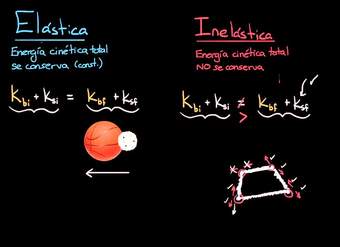 Elástica
Energía cinética total
se conserva (const.)
K_bi + K_si = K_bf + K_sf
Inelástica
Energía cinética total
NO se conserva
K_bi + K_si ≠ K_bf + K_sf
>